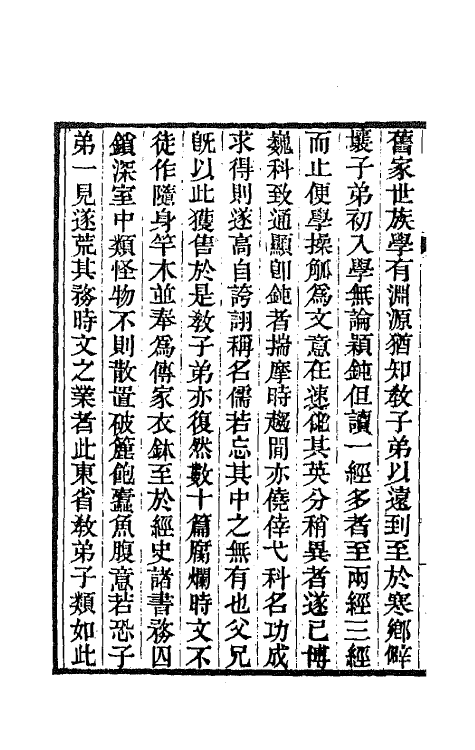 舊家世族學有淵源猶知教子弟以遠到至於寒鄉僻
壤子弟初入學無論穎鈍但讀一經多者至兩經三經
而止便學操觚爲文意在速化其英分稍異者遂已博
巍科致通顯卽鈍者揣摩時趨間亦僥倖弋科名功成
求得則遂高自誇詡稱名儒若忘其中之無有也父兄
旣以此獲售於是教子弟亦復然數十篇腐爛時文不
徒作隨身竿木並奉爲傳家衣鉢至於經史諸書務囚
鎖深室中類怪物不則散置破簏飽蠹魚腹意若恐子
弟一見遂荒其務時文之業者此東省教弟子類如此